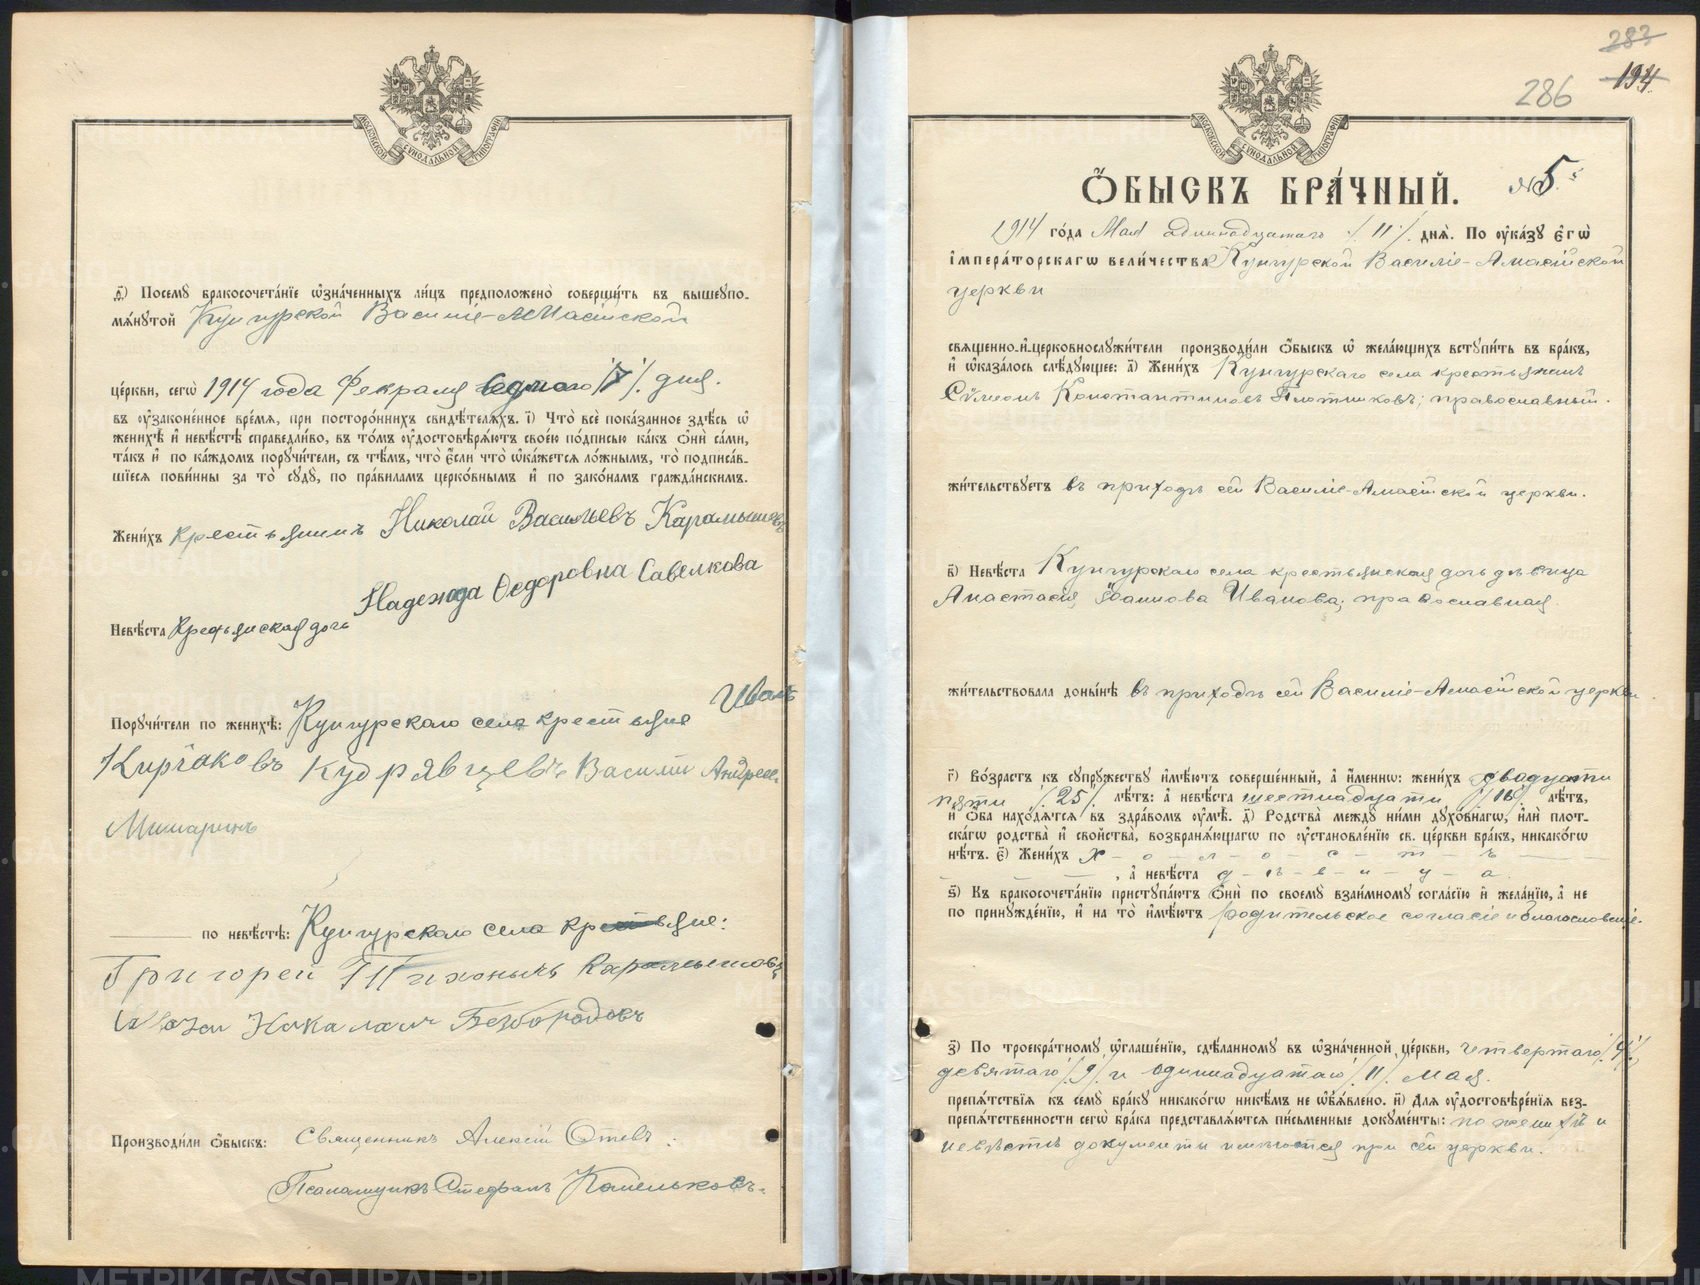 МОСКОВСКОЙ СѴНОДАЛЬНОЙ ТИПОГРАФІИ
и҃) Посему бракосочетаніе ѡзначенныхъ лицъ предположено совершить въ вышеупо-
мянутой Кунгурской Василіе-Амасійской
церкви, сегѡ 1914 года Февраля седмого /7/. дня.
въ узаконенное время, при постороннихъ свидѣтеляхъ. і҃) Что все показанное здѣсь ѡ
женихѣ и невѣстѣ справедливо, въ томъ удостовѣряютъ своею подписью какъ ѻни сами,
такъ и по каждомъ поручители, съ тѣмъ, что если что ѡкажется ложнымъ, то подписав-
шіеся повинны за то суду, по правиламъ церковнымъ и по законамъ гражданскимъ.
Женихъ крестьянинъ Николай Васильевъ Карамышевъ
Надежда Ѳедоровна Савелкова
Невѣста Крестьянская дочь
Поручители по женихѣ: Кунгурскаго села крестьяне Иванъ
Кудрявцевъ Василiй Андреев
по невѣстѣ: Кунгурскаго села крестьяне:
Григорей Тихонычъ Карамышовъ
Безбородовъ
Производили ѻбыскъ: Священникъ Алексій
Псаломщикъ Стефанъ
283
194
286
МОСКОВСКОЙ СѴНОДАЛЬНОЙ ТИПОГРАФІИ
ѺБЫСКЪ БРАЧНЫЙ. № 5
1914 года Мая одиннадцатаго /.11/. дня. По указу егѡ
императорскагѡ величества Кунгурской Василіе-Амасійской
церкви
священно-и-церковнослужители производили ѻбыскъ ѡ желающихъ вступить въ бракъ,
и ѡказалось слѣдующее: а҃) Женихъ Кунгурскаго села крестьянинъ
Сѵмеонъ Константиновъ Плотниковъ; православный.
жительствуетъ въ приходѣ сей Василіе-Амасійской церкви.
в҃) Невѣста Кунгурскаго села крестьянская дочь дѣвица
Анастасія Іоаннова Иванова; православная.
жительствовала донынѣ въ приходѣ сей Василіе-Амасійской церкви
г҃) Возрастъ къ супружеству имѣютъ совершенный, а именнѡ: женихъ двадцати
пяти /.25/. лѣтъ: а невѣста шестнадцати /.16/. лѣтъ,
и ѻба находятся въ здравомъ умѣ. д҃) Родства между ними духовнагѡ, или плот-
скагѡ родства и свойства, возбраняющагѡ по установленію св. церкви бракъ, никакогѡ
нѣтъ. є҃) Женихъ х-о-л-о-с-т-ъ
, а невѣста д-ѣ-в-и-ц-а.
ѕ҃) Къ бракосочетанію приступаютъ ѻни по своему взаимному согласію и желанію, а не
по принужденію, и на то имѣютъ родительское согласіе и благословеніе.
з҃) По троекратному ѡглашенію, сдѣланному въ ѡзначенной церкви, четвертаго /.4/.
девятаго /.9/. и одиннадцатаго /.11/. мая.
препятствія къ сему браку никакогѡ никѣмъ не ѡбъявлено. и҃) Для удостовѣренія без-
препятственности сегѡ брака представляются письменные документы: по женихѣ и
невѣстѣ документы имѣются при сей церкви.